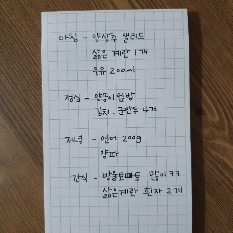 아침 - 양상추 샐러드
삶은 계란 1개
우유 200ml
점심 - 양송이 덮밥
김치, 군만두 4개
저녁 - 연어 200g
양파
간식 - 방울토마토 많이 ㅋㅋ
삶은계란 흰자 2개